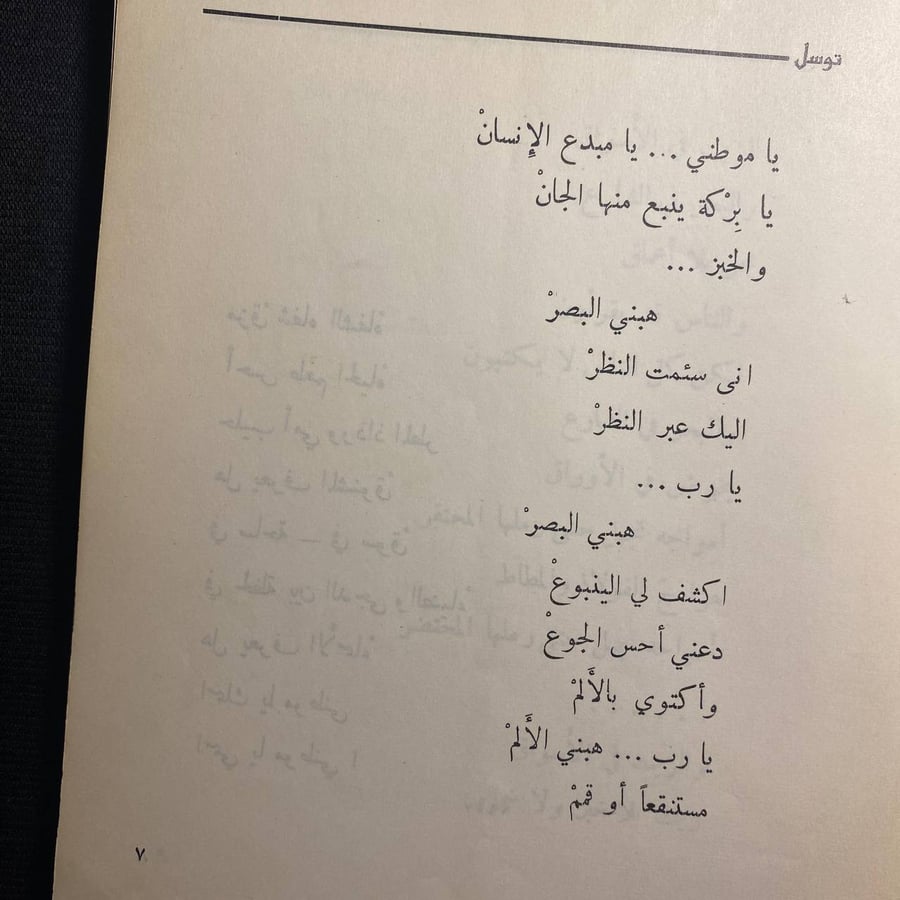 توسل
يا موطني ... يا مبدع الإِنسانْ
يا بِرْكة ينبع منها الجانْ
والخبز ...
هبني البصرْ
انى سئمت النظرْ
اليك عبر النظرْ
يا رب ...
هبني البصرْ
اكشف لي الينبوعْ
دعني أحس الجوعْ
وأكتوي بالأَلمْ
يا رب ... هبني الأَلمْ
مستنقعاً أو قممْ
٧